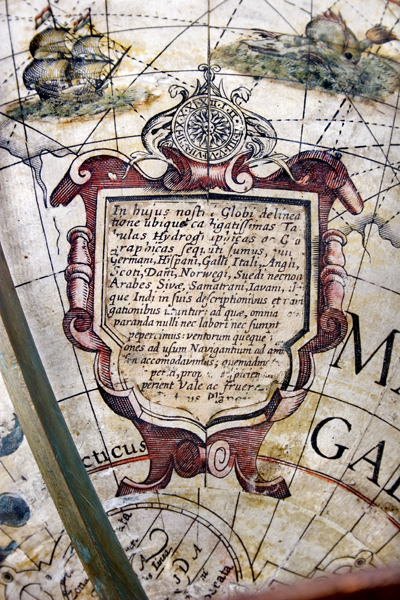 In hujus nostri Globi delinea
tione ubique castigatissimas Ta
bulas Hydrographicas ac Ge
ographicas sequuti sumus,
Germani, Hispani, Galli Itali, Angli,
Scoti, Dani, Norwegi, Suedi necnon
Arabes Sinæ, Samatrani, Iavani,
que Indi in suis descriptionibus et navi
gationibus utuntur: ad quæ, omnia
paranda nulli nec labori nec sumpt
pepercimus: ventorum queque
ones ad usum Navigantium ad
accomodavimus; quemadm
per
perient Vale ac fruere
M
GAL
cticus